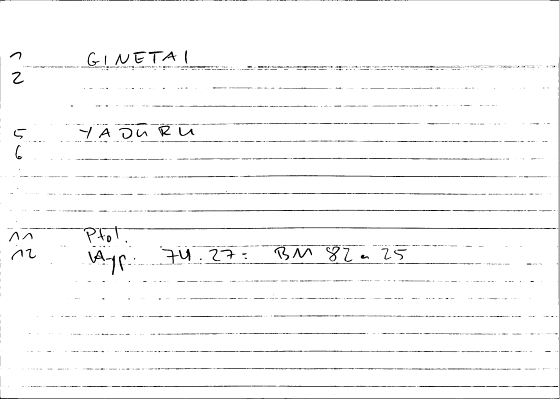 1 GINETAI
2
5 YADURU
6
11 Ptol.
12 74.27 = BM 82 a 25